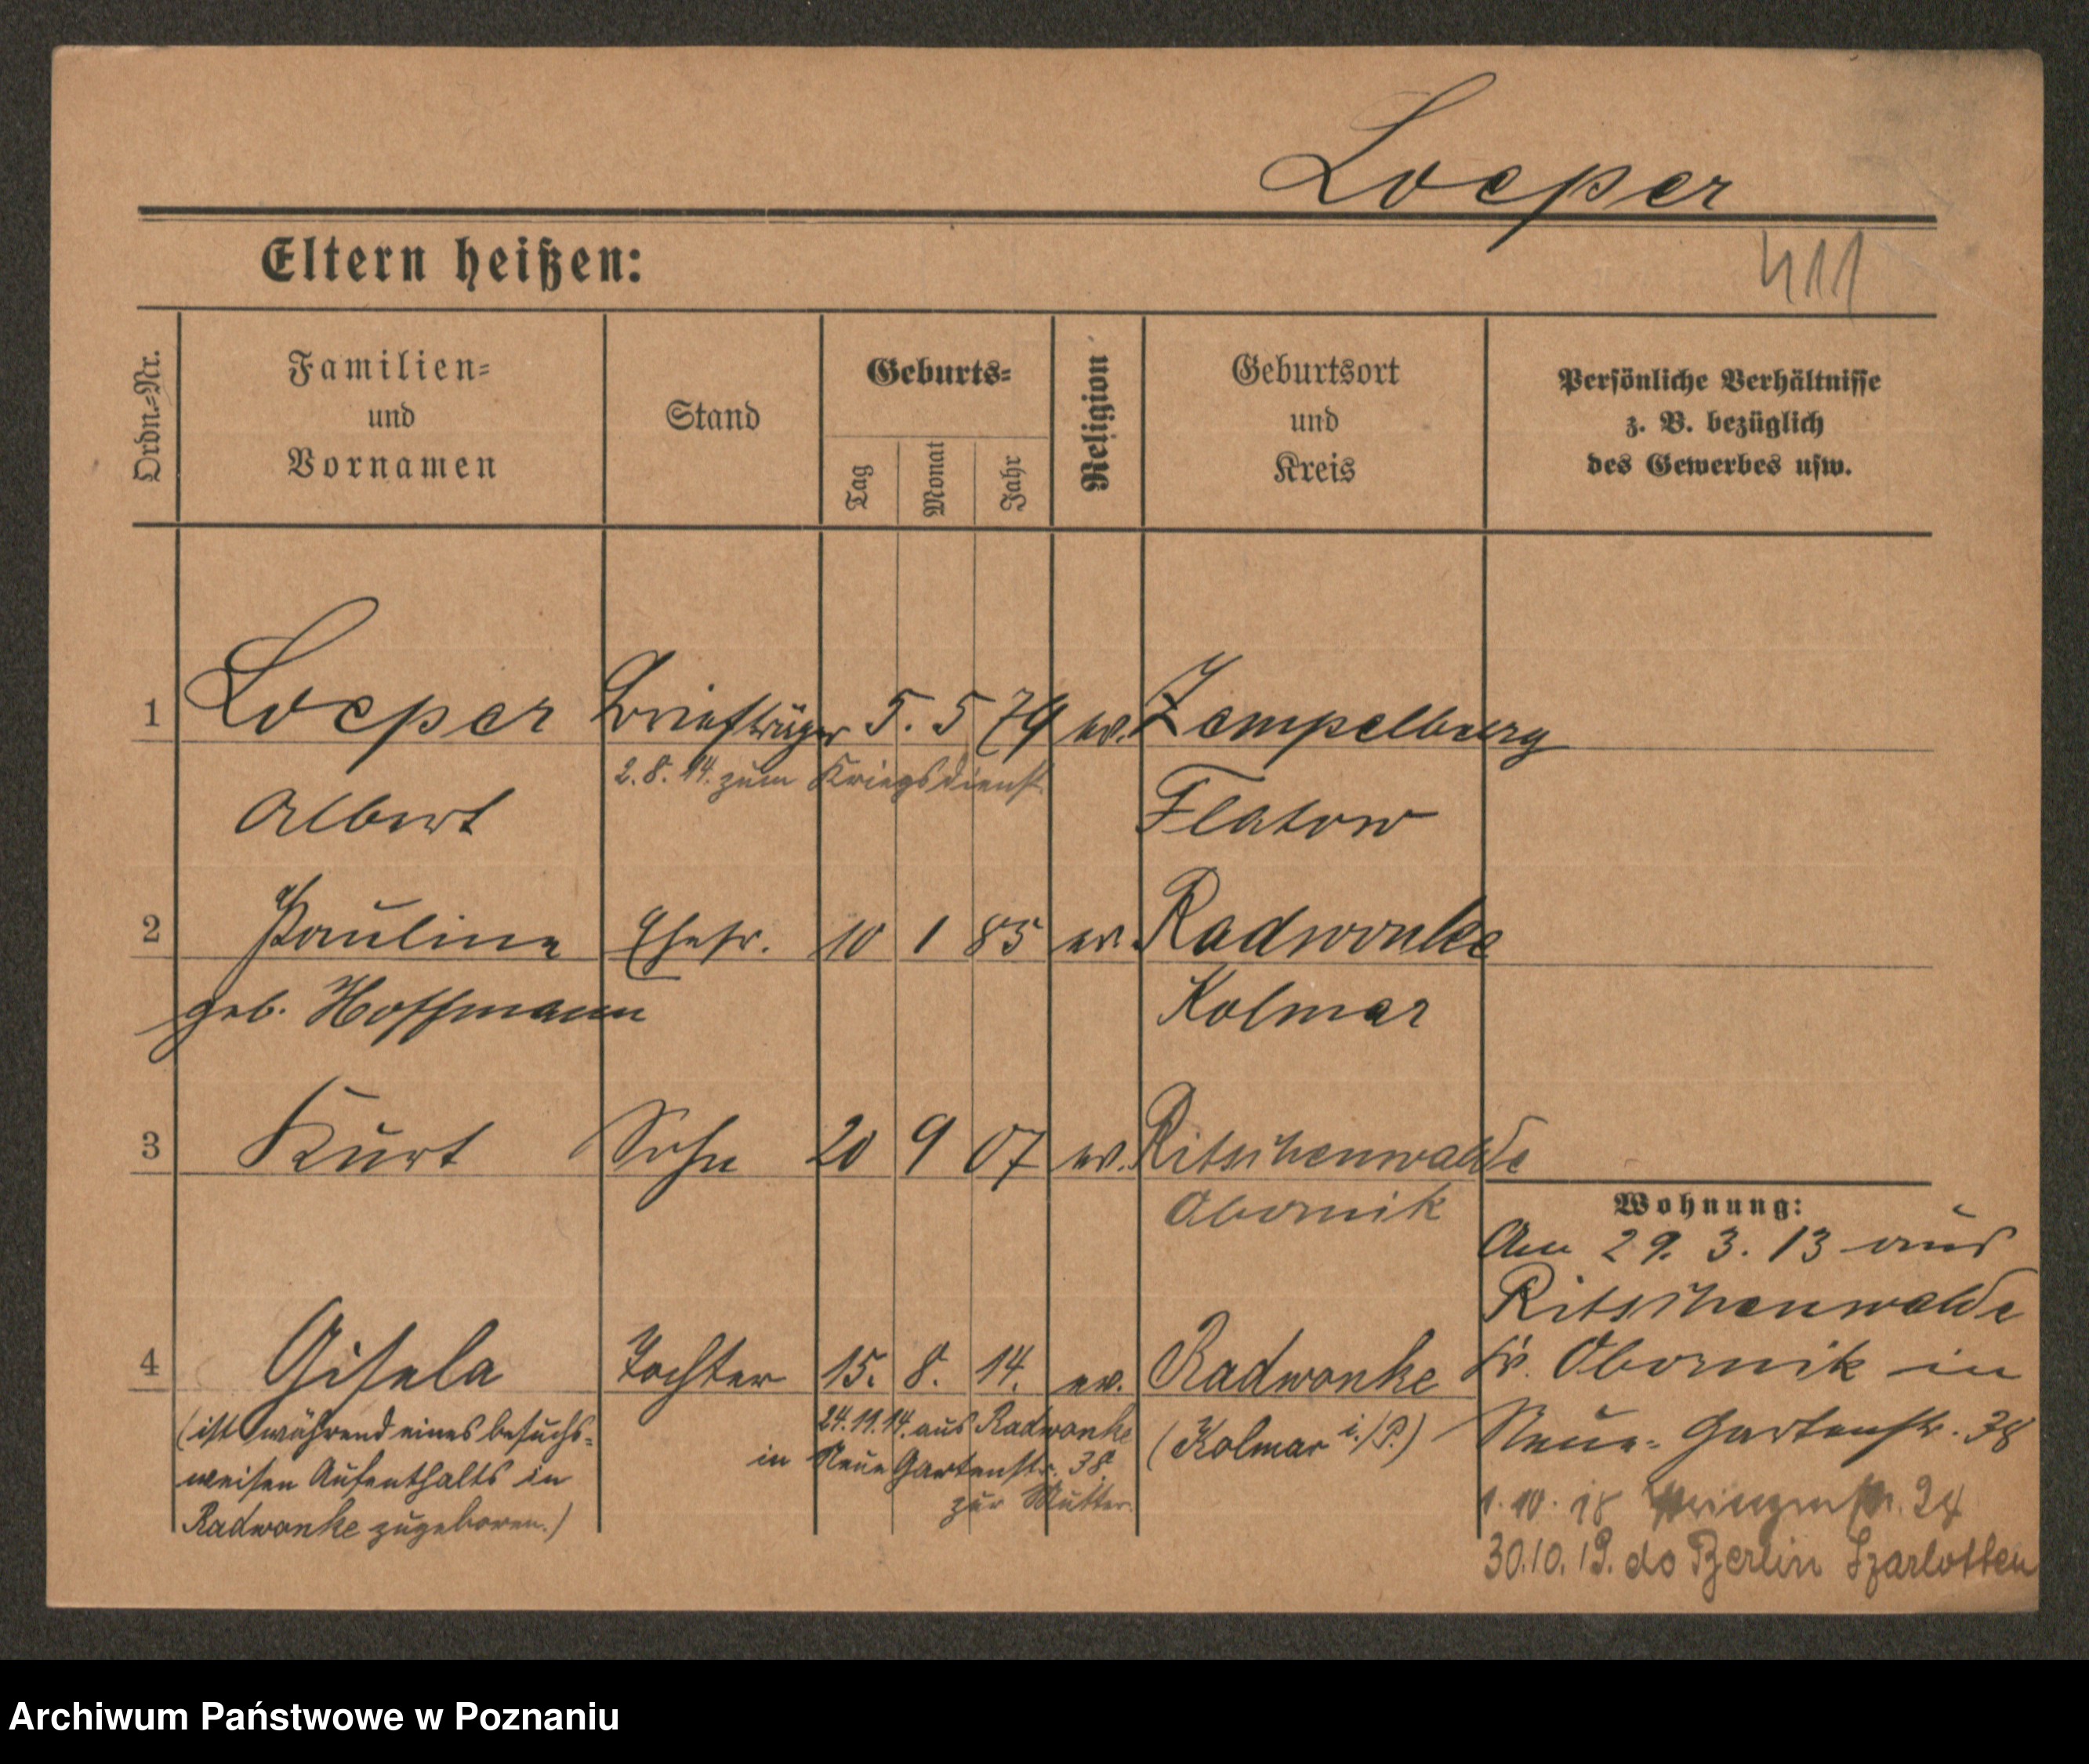 Loeper
411
Eltern heißen:
Ordn.=Nr.
Familien=
und
Vornamen
Stand
Geburts=
Tag
Monat
Jahr
Religion
Geburtsort
und
Kreis
Persönliche Verhältnisse
z. B. bezüglich
des Gewerbes usw.
1 Loeper Briefträger 5. 5 79 ev. Zempelburg
2. 8. 14. zum Kriegsdienst
Albert Flatow
2 Pauline Ehefr. 10 1 85 ev. Radwonke
geb. Hoffmann Kolmar
3 Kurt Sohn 20 9 07 ev. Ritschenwalde
Obornik
Wohnung:
Am 29. 3. 13 aus
Ritschenwalde
Kr. Obornik in
Neue=Gartenstr. 38
1. 10. 18 Prinzenstr. 24
30.10.19. do Berlin Szarlotten
4 Gisela Tochter 15. 8. 14. ev. Radwonke
(ist während eines besuchs=
weisen Aufenthalts in
Radwonke zugeboren.)
24.11.14. aus Radwonke
in Neue Gartenstr. 38.
zur Mutter.
(Kolmar i./P.)
Archiwum Państwowe w Poznaniu